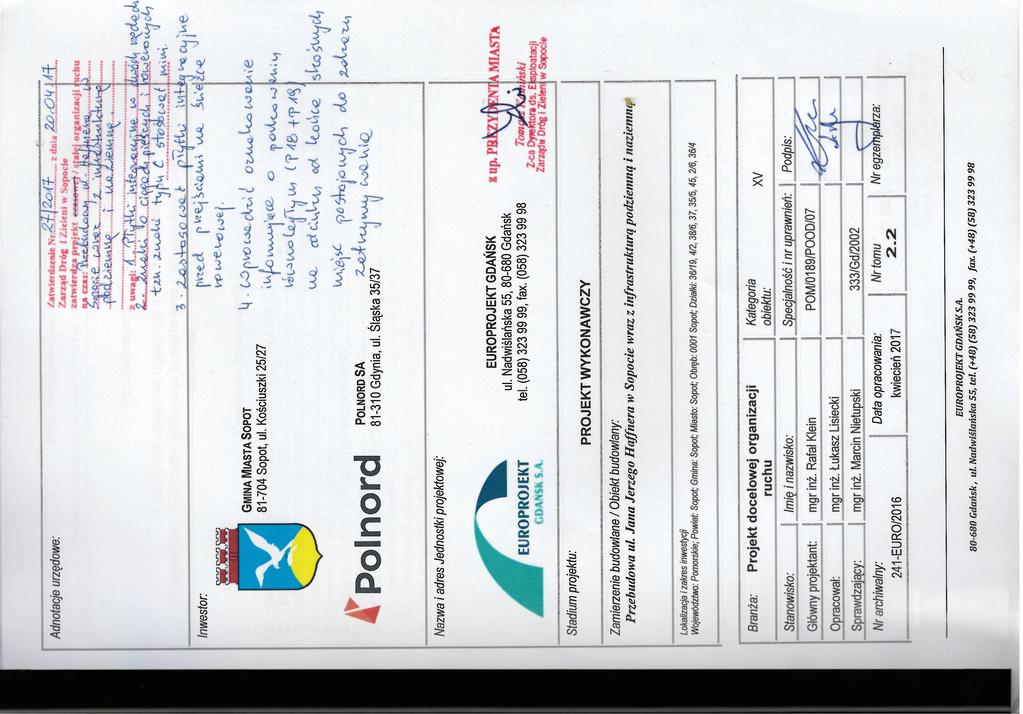 Adnotacje urzędowe:
Zatwierdzenie Nr. 27/2017 z dnia 20.04.17
Zarząd Dróg i Zieleni w Sopocie
zatwierdza projekt czasowej / stałej organizacji ruchu
na czas: Przebudowy ul. Haffnera w
Sopocie wraz z infrastrukturą
podziemną i naziemną
z uwagi: 1. Płytki integracyjne w dwóch rzędach
2. znaki do ciągach pieszych i rowerowych
tzn. znaki typu C stosować mini.
3. zastosować płytki integracyjne
przed przejściami na ścieżce
rowerowej.
4. wprowadzić oznakowanie
informujące o parkowaniu
równoległym (P18 + P19)
na odcinku od końca skośnych
miejsc postojowych do zakazu
zatrzymywania
Inwestor:
GMINA MIASTA SOPOT
81-704 Sopot, ul. Kościuszki 25/27
Polnord
POLNORD SA
81-310 Gdynia, ul. Śląska 35/37
Nazwa i adres Jednostki projektowej:
EUROPROJEKT
GDAŃSK S.A.
EUROPROJEKT GDAŃSK
ul. Nadwiślańska 55, 80-680 Gdańsk
tel. (058) 323 99 99, fax. (058) 323 99 98
z up. PREZYDENTA MIASTA
Tomasz Kamiński
Z-ca Dyrektora ds. Eksploatacji
Zarządu Dróg i Zieleni w Sopocie
Stadium projektu:
PROJEKT WYKONAWCZY
Zamierzenie budowlane / Obiekt budowlany:
Przebudowa ul. Jana Jerzego Haffnera w Sopocie wraz z infrastrukturą podziemną i naziemną
Lokalizacja i zakres inwestycji
Województwo: Pomorskie; Powiat: Sopot; Gmina: Sopot; Miasto: Sopot; Obręb: 0001 Sopot; Działki: 36/19, 4/2, 38/6, 37, 35/5, 45, 2/6, 36/4
Branża: Projekt docelowej organizacji ruchu Kategoria obiektu: XV
Stanowisko: Imię i nazwisko: Specjalność i nr uprawnień: Podpis:
Główny projektant: mgr inż. Rafał Klein POM/0189/POOD/07
Opracował: mgr inż. Łukasz Lisiecki
Sprawdzający: mgr inż. Marcin Nietupski 333/Gd/2002
Nr archiwalny: Data opracowania: Nr tomu Nr egzemplarza:
241-EURO/2016 kwiecień 2017 2.2
EUROPROJEKT GDAŃSK S.A.
80-680 Gdańsk, ul. Nadwiślańska 55, tel. (+48) (58) 323 99 99, fax. (+48) (58) 323 99 98